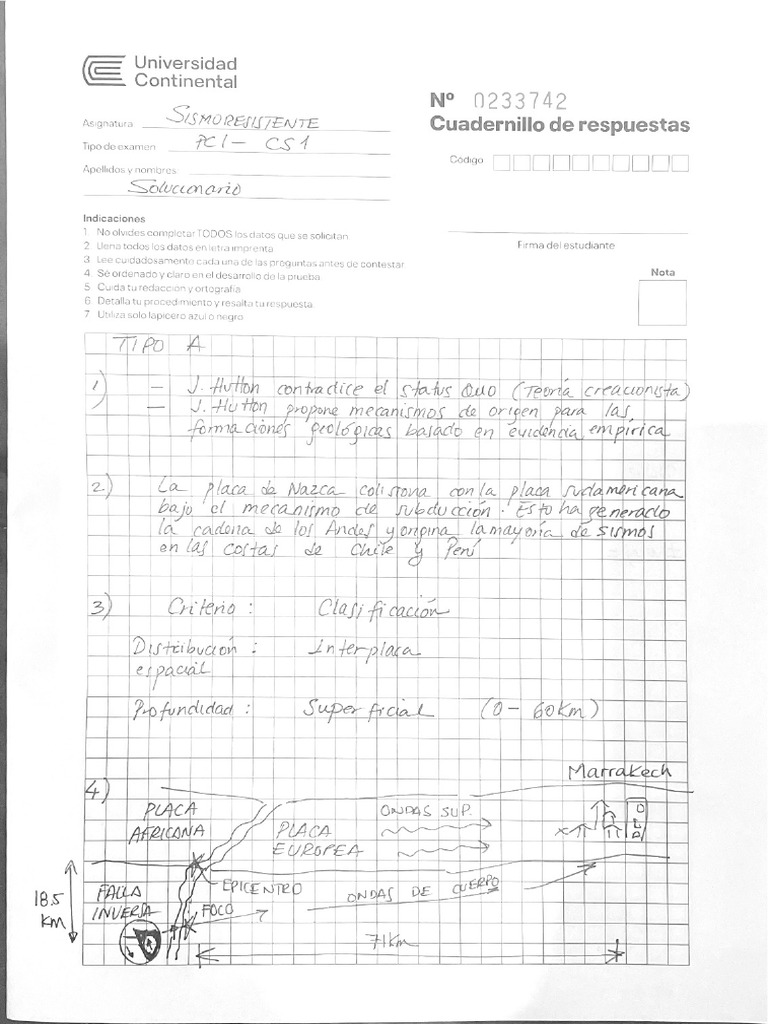 Universidad
Continental
Nº 0233742
Cuadernillo de respuestas
Asignatura SISMORESISTENTE
Tipo de examen PC1 - CS1
Código
Apellidos y nombres
Solucionario
Indicaciones
1. No olvides completar TODOS los datos que se solicitan
2. Llena todos los datos en letra imprenta
3. Lee cuidadosamente cada una de las preguntas antes de contestar
4. Sé ordenado y claro en el desarrollo de la prueba
5. Cuida tu redacción y ortografía
6. Detalla tu procedimiento y resalta tu respuesta
7. Utiliza solo lapicero azul o negro
Firma del estudiante
Nota
TIPO A
1) - J. Hutton contradice el status Quo (Teoría creacionista)
- J. Hutton propone mecanismos de origen para las
formaciones geológicas basado en evidencia empírica
2) La placa de Nazca colisiona con la placa sudamericana
bajo el mecanismo de subducción. Esto ha generado
la cadena de los Andes y origina la mayoría de sismos
en las costas de Chile y Perú
3) Criterio : Clasificación
Distribución : Interplaca
espacial
Profundidad : Superficial (0 - 60Km)
Marrakech
4)
PLACA
AFRICANA
PLACA
EUROPEA
ONDAS SUP.
EPICENTRO
ONDAS DE CUERPO
18.5
KM
FALLA
INVERSA
FOCO
71Km